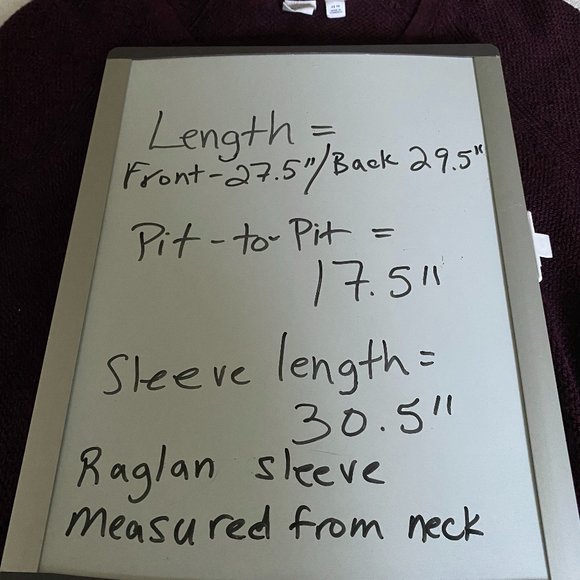 Length =
Front-27.5"/Back 29.5"
Pit-to-Pit =
17.5"
Sleeve length =
30.5"
Raglan sleeve
measured from neck